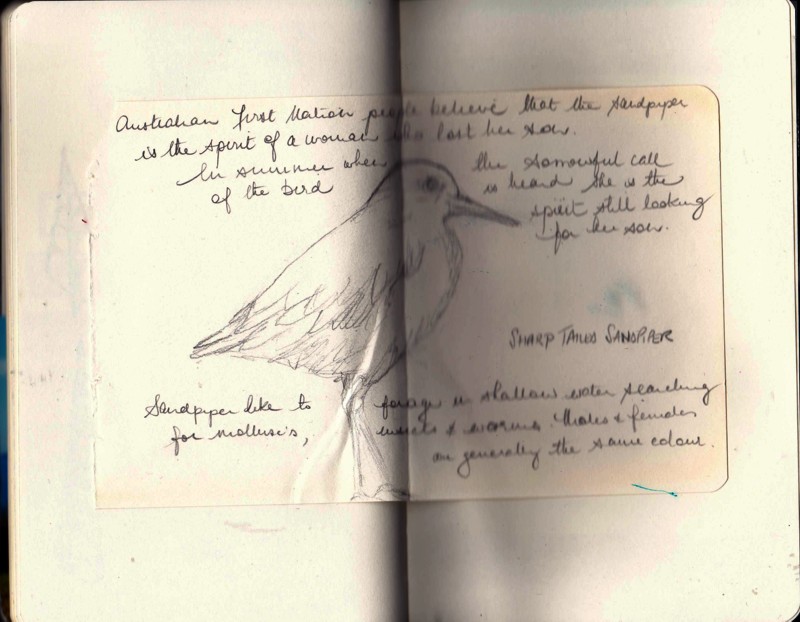 Australian First Nation people believe that the sandpiper
is the spirit of a woman who lost her son.
In summer when the sorrowful call
of the bird is heard she is the
spirit still looking
for her son.
SHARP TAILED SANDPIPER
Sandpiper like to forage in shallow water searching
for molluscs, insects & worms. Males & females
are generally the same colour.